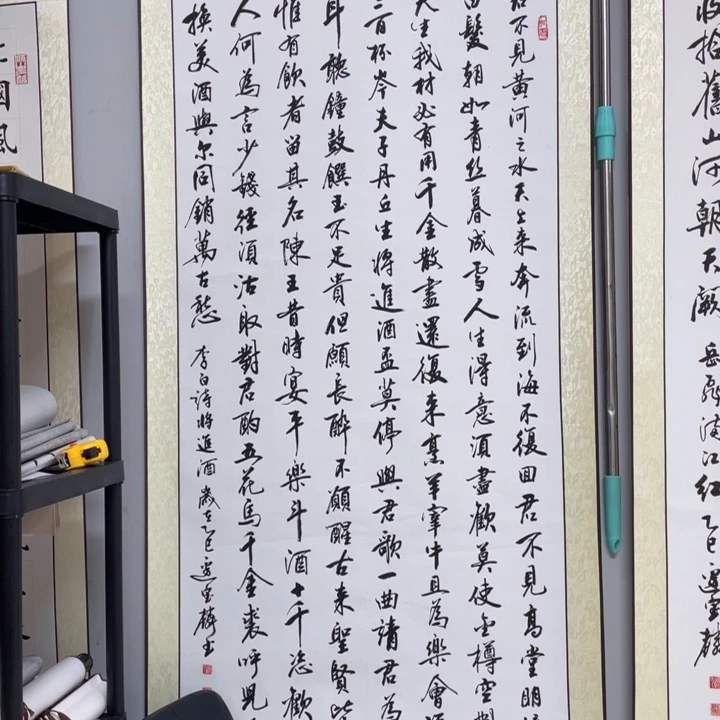 收拾舊山河朝天闕 岳飛滿江紅 乙巳
君不見黃河之水天上来奔流到海不復回君不見高堂明
白髮朝如青丝暮成雪人生得意須盡歡莫使金樽空對
天生我材必有用千金散盡還復来烹羊宰牛且為樂會須
三百杯岑夫子丹丘生將進酒盃莫停與君歌一曲請君為
耳聽鐘鼓饌玉不足貴但願長醉不願醒古来聖賢皆
惟有飲者留其名陳王昔時宴平樂斗酒十千恣歡
人何為言少錢徑須沽取對君酌五花馬千金裘呼児
換美酒與尔同銷萬古愁 李白詩將進酒 歲在乙巳
國風